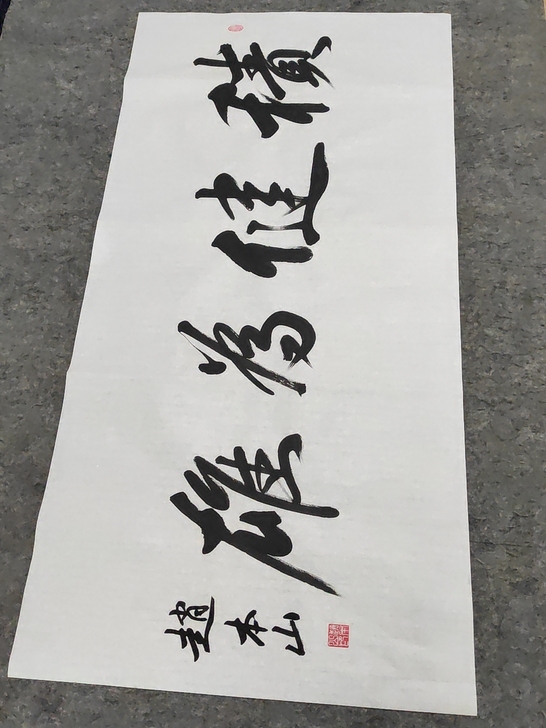 積健為雄
趙本山